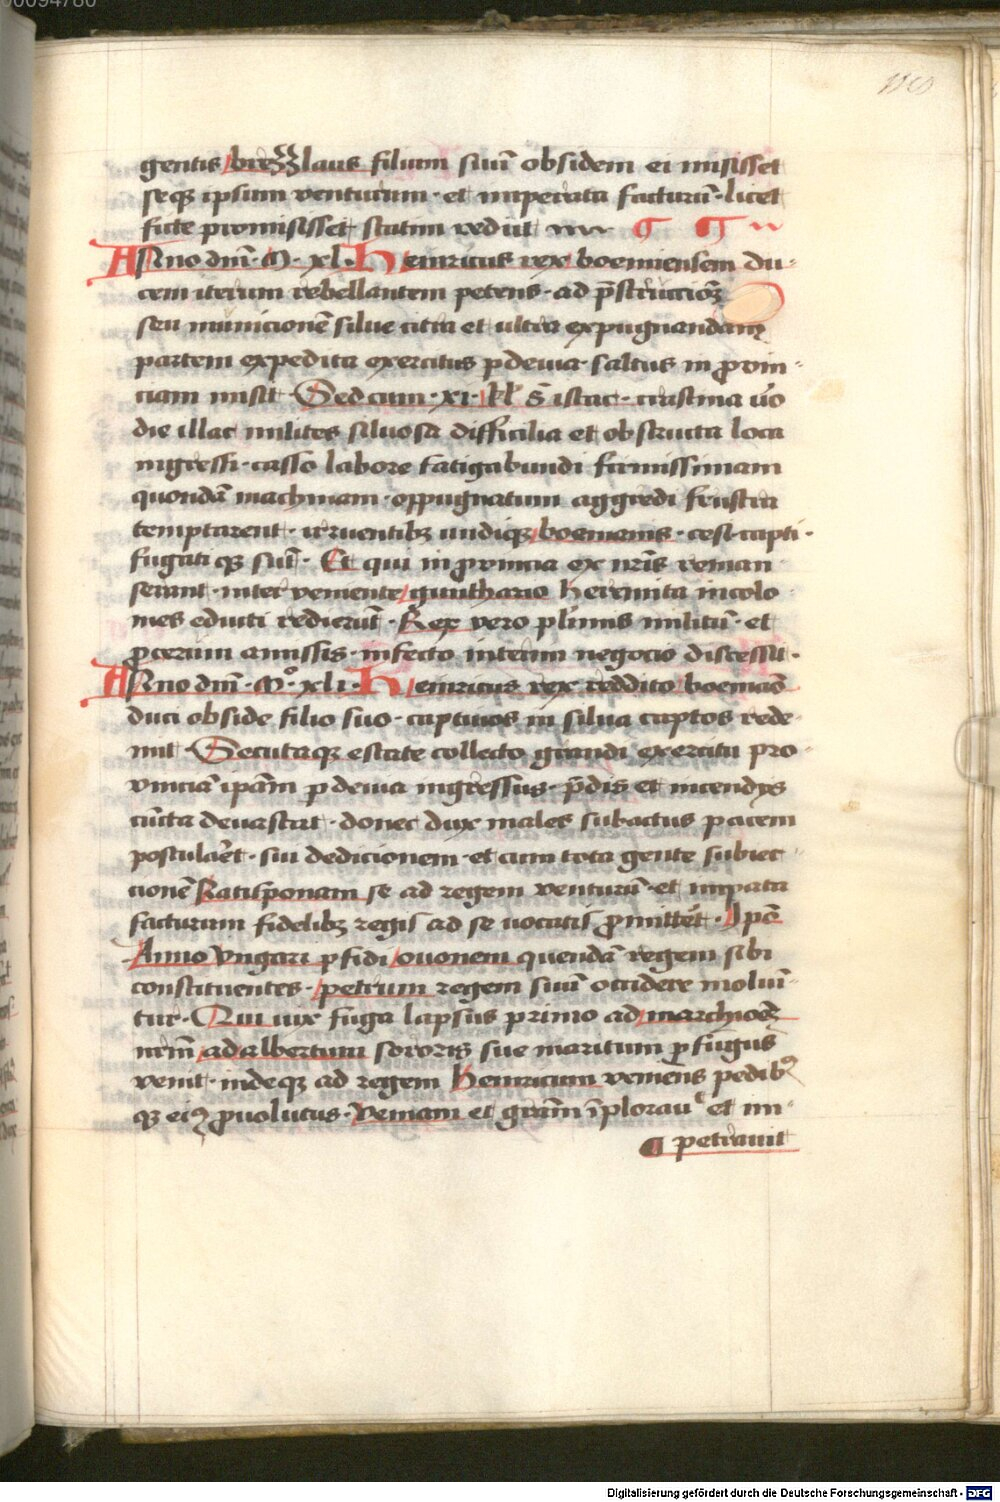 00094780
gentis brezzlaus filium suū obsidem ei misisset
seqꝫ ipsum venturum · et imperata facturū · licet
ficte promisisset statim redut
Anno dnī · M · xl · Heinricus rex boemiensem du-
cem iterum rebellantem petens · ad p̄structiōꝫ
seu municionē silue citra et ultra expugnandam
partem expedita exercitus ꝑ deuia · saltus in ꝓvin-
ciam misit · Sed cum · xi · kl' S istac · crastina u̇o
die illac milites siluosa difficilia et obstructa loca
ingressi · casso labore fatigabundi firmissimam
quondā machinam · oppugnatum aggredi frustra
temptarent · irruentibꝫ undiqꝫ boemanis · cesi · capti ·
fugati qꝫ sūt · Et qui in ꝓvincia ex nr̄is reman
serant · interveniente gunthario heremita incolo
mes educti redierūt · Rex vero pl'imis militū · et
ꝓcerum amissis · infecto interim negocio discessit ·
Anno dnī · Mͦ · xli · Heinricus rex reddito boemāo
duci obside filio suo · captiuos in silua captos rede-
mit · Secutaqꝫ estate collecto grandi exercitu pro-
vinciā ipām ꝑ deuia ingressus · p̄dis et incendys
cūcta deuastat · donec dux males subactus pacem
postularet · sui dedicionem · et cum tota gente subiec
cionē Ratisponam se ad regem venturū · et impata
facturum fidelibꝫ regis ad se uocatis ꝓmittēt · Ip̄o
Anno Vngari ꝑfidi ouonem quendā regem sibi
constituentes · petrum regem suū occidere moliūn-
tur · Qui uix fuga lapsus primo ad marchiōeꝫ
nr̄m adalbertum sororis sue maritum ꝓfugus
venit · indeqꝫ ad regem heinricum veniens pedibꝫ
qꝫ eiꝰ ꝓuolutus · veniam et grām īplorau' et im-
petrauit
Digitalisierung gefördert durch die Deutsche Forschungsgemeinschaft - DFG